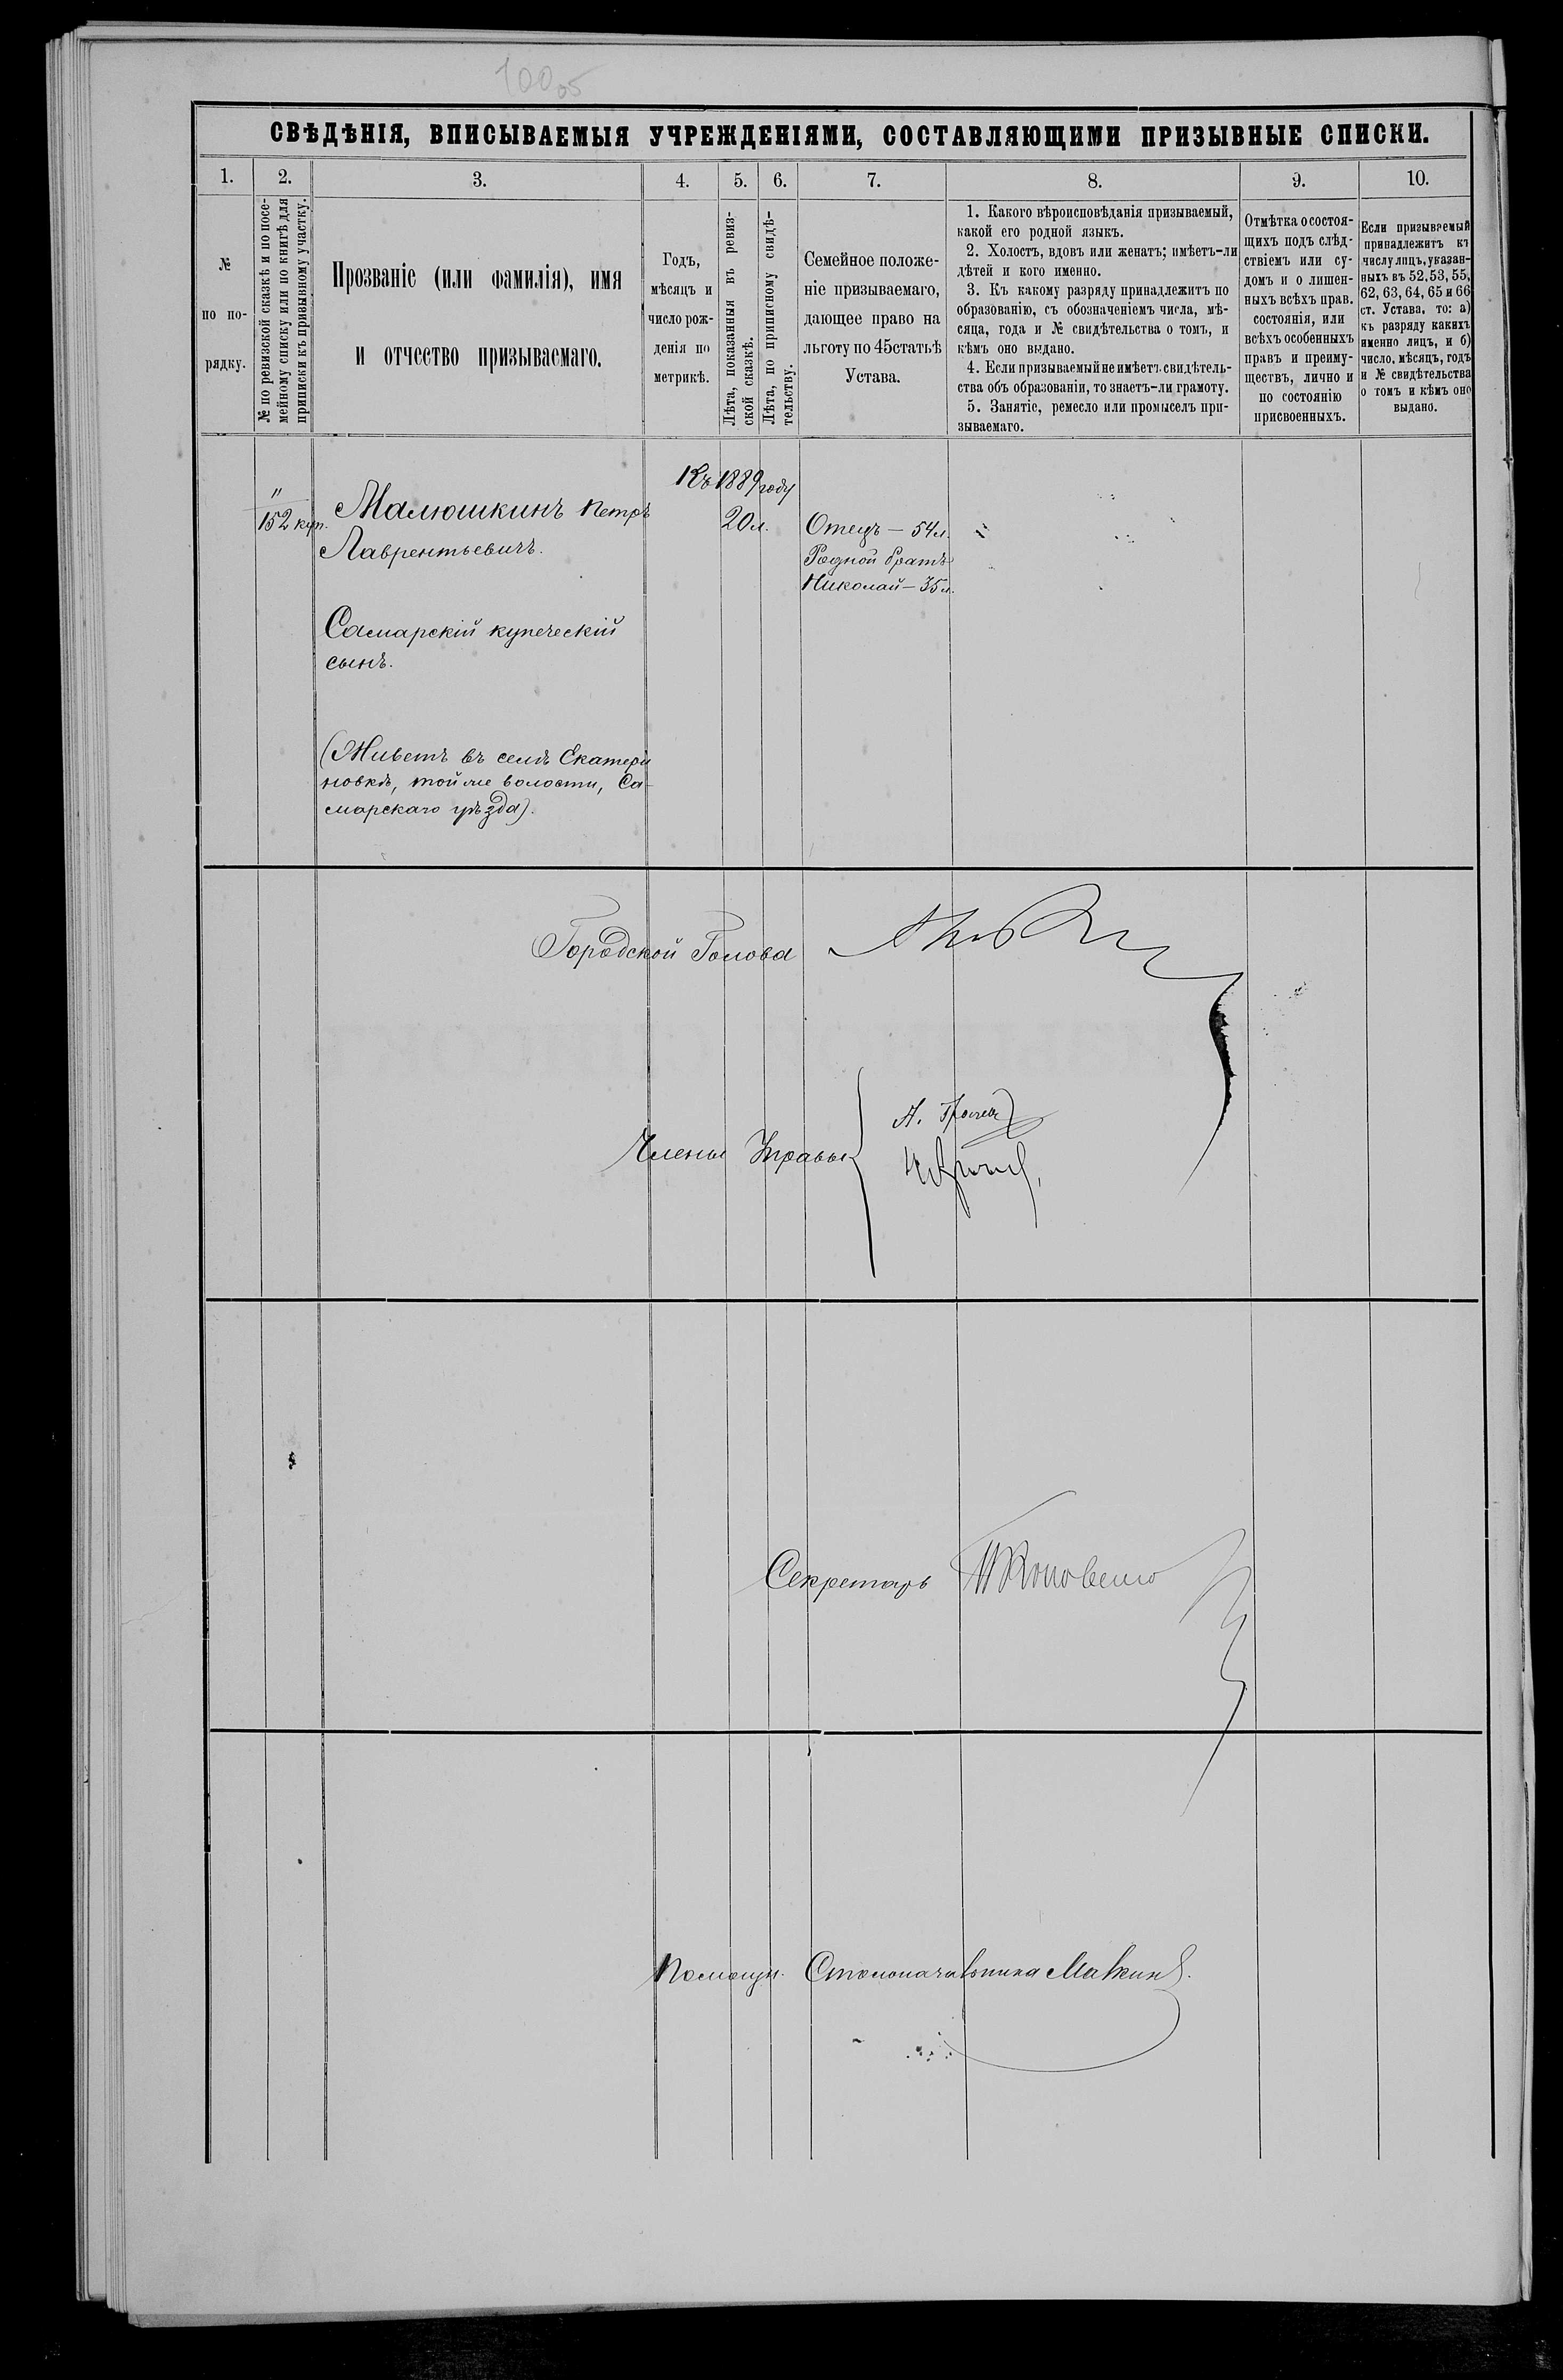 10005
СВѢДѢНІЯ, ВПИСЫВАЕМЫЯ УЧРЕЖДЕНІЯМИ, СОСТАВЛЯЮЩИМИ ПРИЗЫВНЫЕ СПИСКИ.
1.
2.
3.
4.
5.
6.
7.
8.
9.
10.
№
по по-
рядку.
№ по ревизской сказкѣ и по посе-
мейному списку или по книгѣ для
приписки къ призывному участку.
Прозваніе (или фамилія), имя
и отчество призываемаго.
Годъ,
мѣсяцъ и
число рож-
денія по
метрикѣ.
Лѣта, показанныя въ ревиз-
ской сказкѣ.
Лѣта, по приписному свидѣ-
тельству.
Семейное положе-
ніе призываемаго,
дающее право на
льготу по 45статьѣ
Устава.
1. Какого вѣроисповѣданія призываемый,
какой его родной языкъ.
2. Холостъ, вдовъ или женатъ; имѣетъ-ли
дѣтей и кого именно.
3. Къ какому разряду принадлежитъ по
образованію, съ обозначеніемъ числа, мѣ-
сяца, года и № свидѣтельства о томъ, и
кѣмъ оно выдано.
4. Если призываемый не имѣетъ свидѣтель-
ства объ образованіи, то знаетъ-ли грамоту.
5. Занятіе, ремесло или промыселъ при-
зываемаго.
Отмѣтка о состоя-
щихъ подъ слѣд-
ствіемъ или су-
домъ и о лишен-
ныхъ всѣхъ прав.
состоянія, или
всѣхъ особенныхъ
правъ и преиму-
ществъ, лично и
по состоянію
присвоенныхъ.
Если призываемый
принадлежитъ къ
числу лицъ, указан-
ныхъ въ 52, 53, 55,
62, 63, 64, 65 и 66
ст. Устава, то: а)
къ разряду какихъ
именно лицъ, и б)
число, мѣсяцъ, годъ
и № свидѣтельства
о томъ и кѣмъ оно
выдано.
"
152 куп.
Малюшкинъ Петръ
Лаврентьевичъ.
Самарскій купеческій
сынъ.
(Живетъ въ селѣ Екатери
новкѣ, той же волости, Са-
марскаго уѣзда).
Къ 1889 году
20 л.
Отецъ — 54 л.
Родной братъ
Николай — 35 л.
Городской Голова
Члены Управы
А.
Секретарь
Помощн. Столоначальника